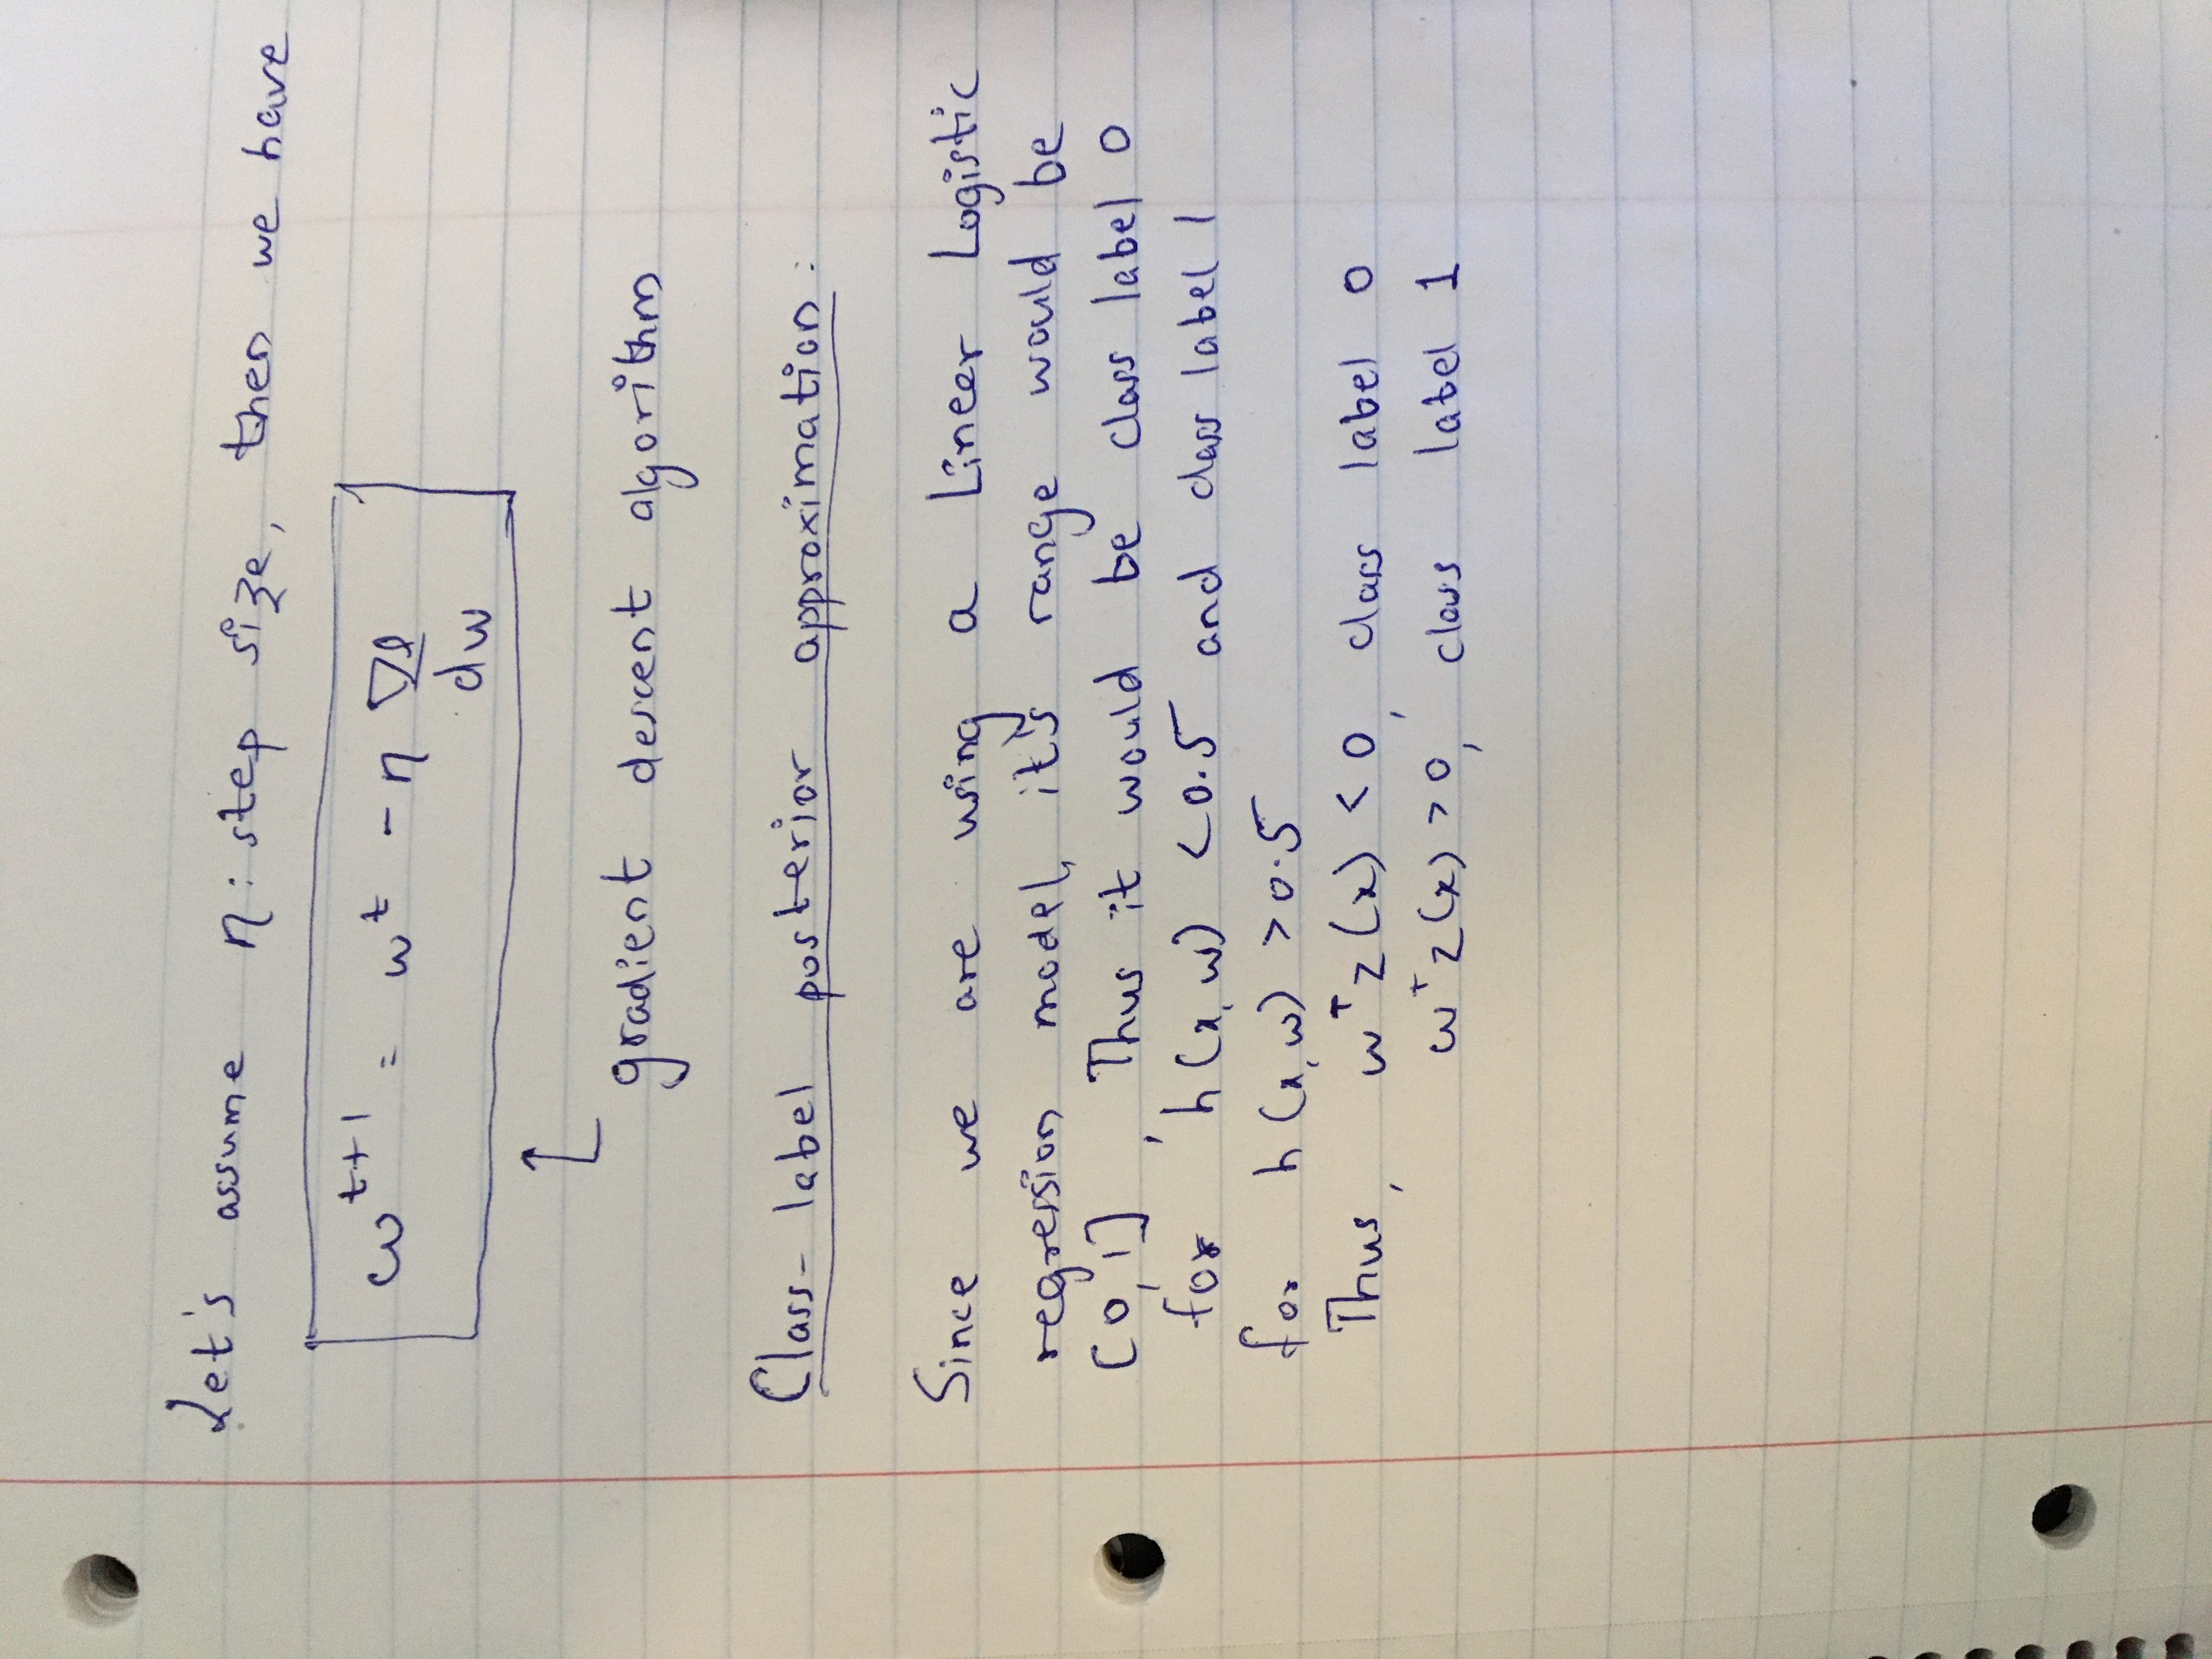 Let's assume η: step size, then we have
w^{t+1} = w^t - η ∇l
dw
gradient descent algorithm
Class-label posterior approximation:
Since we are using a Lineer Logistic
regression model, it's range would be
[0,1], Thus it would be class label 0
for h(x,w) <0.5 and class label 1
for h(x,w) >0.5
Thus, w^T z(x) < 0, class label 0
w^T z(x) > 0, class label 1